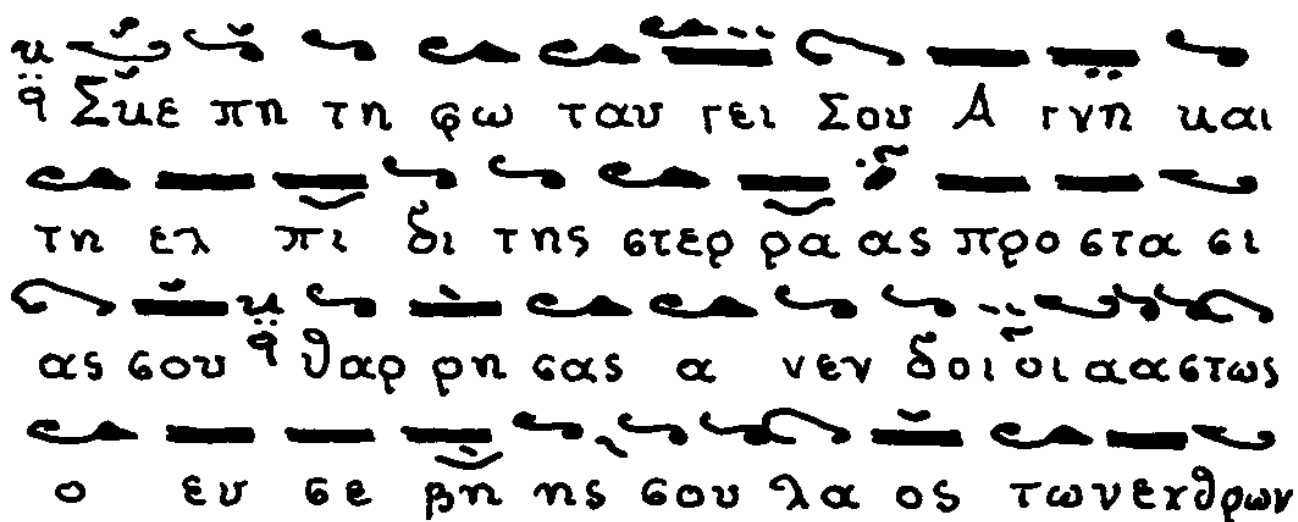 Σκε πη τη φω ταυ γει Σου Α γνη και
τη ελ πι δι της στερ ρα ας προ στα σι
ας σου θαρ ρη σας α νεν δοι οι α α στως
ο ευ σε βη ης σου λα ος των εχθρων